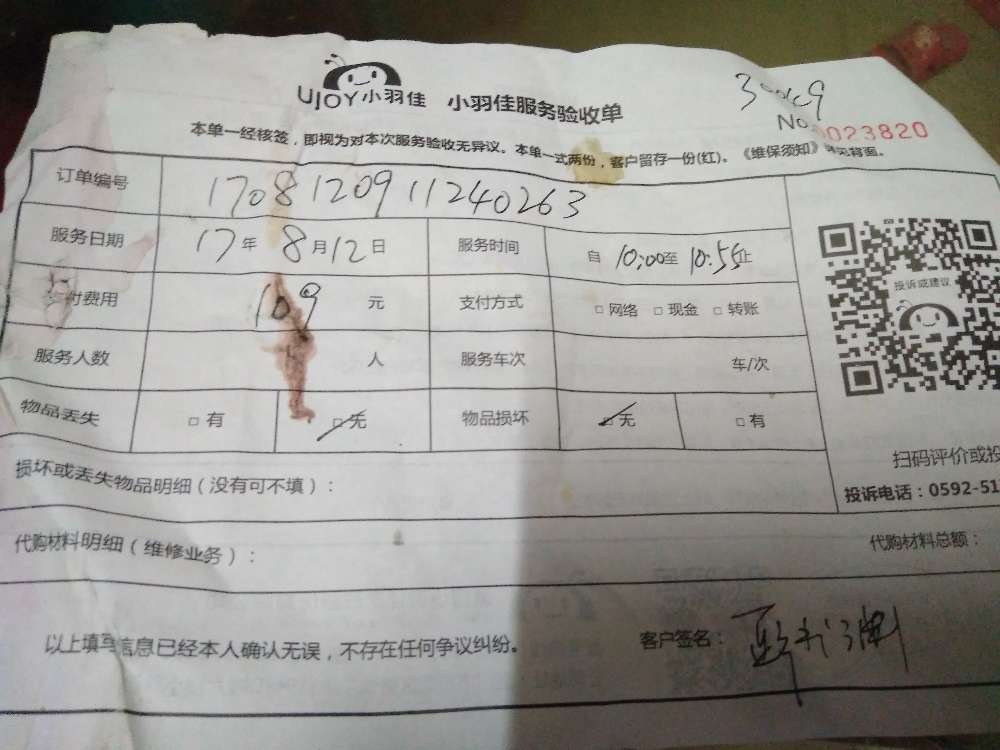 UJOY小羽佳 小羽佳服务验收单
No 0023820
本单一经核签，即视为对本次服务验收无异议。本单一式两份，客户留存一份(红)。《维保须知》详见背面。
订单编号 1708120911240263
服务日期 17年8月12日 服务时间 自10:00至10:55止
付费用 109元 支付方式 □网络 □现金 □转账
服务人数 人 服务车次 车/次
物品丢失 □有 □无 物品损坏 □无 □有
投诉或建议
扫码评价或投
损坏或丢失物品明细（没有可不填）：
投诉电话：0592-51
代购材料明细（维修业务）： 代购材料总额：
以上填写信息已经本人确认无误，不存在任何争议纠纷。 客户签名：